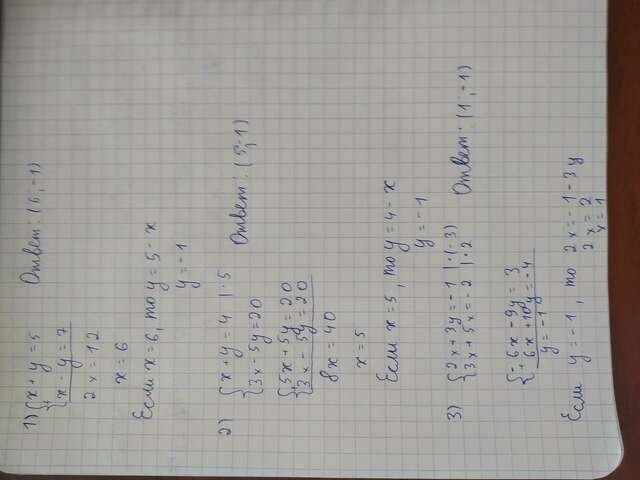 1) { x + y = 5
x - y = 7
Ответ: (6; -1)
2x = 12
x = 6
Если x = 6, то y = 5 - x
y = -1
2) { x + y = 4 | · 5
3x - 5y = 20
Ответ: (5; -1)
{ 5x + 5y = 20
+ 3x - 5y = 20
8x = 40
x = 5
Если x = 5, то y = 4 - x
y = -1
3) { 2x + 3y = -1 | · (-3)
3x + 5x = -2 | · 2
Ответ: (1; -1)
{ -6x - 9y = 3
+ 6x + 10y = -4
y = -1
Если y = -1, то 2x = -1 - 3y
2x = 2
x = 1